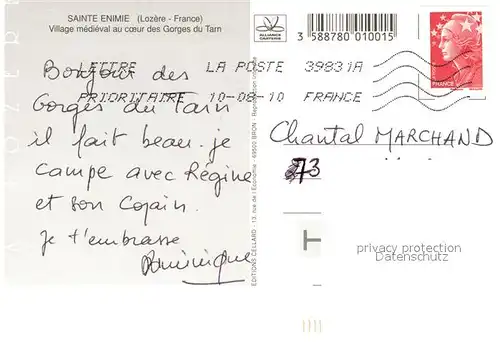 SAINTE ENIMIE (Lozère - France)
Village médiéval au cœur des Gorges du Tarn
Bonjour des
Gorges du Tarn
il fait beau. je
campe avec Régine
et son Copain.
Je t'embrasse
Dominique
LETTRE LA POSTE 39831A
PRIORITAIRE 10-08-10 FRANCE
ALLIANCE CARTERIE
3 588780 010015
FRANCE
ÉDITIONS CELLARD - 13, rue de l'Economie - 69500 BRON - Reproduction
Chantal MARCHAND
273
privacy protection
Datenschutz